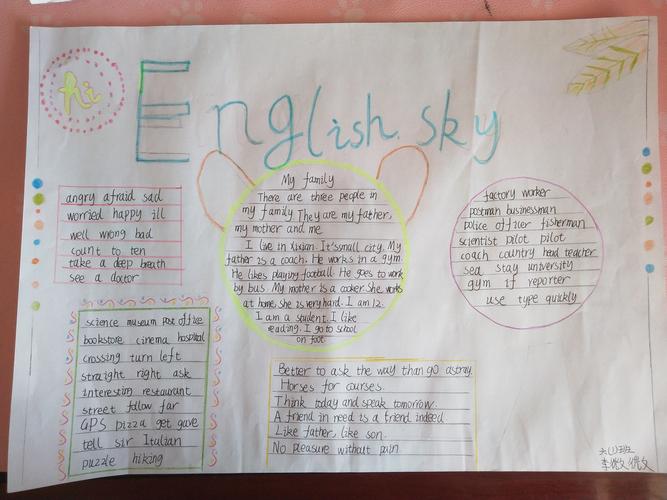 hi
English sky
angry afraid sad
worried happy ill
well wrong bad
count to ten
take a deep breath
see a doctor
My family
There are three people in
my family They are my father,
my mother and me.
I live in Xixian. It'ssmall city. My
father is a coach. He works in a gym.
He likes playing football. He goes to work
by bus. My mother is a cooker. She works
at home. she is very hard. I am 12.
I am a student. I like
reading. I go to school
on foot.
factory worker
postman businessman
police officer fisherman
scientist pilot pilot
coach country head teacher
sea stay university
gym if reporter
use type quickly
science museum post office
bookstore cinema hospital
crossing turn left
straight right ask
interesting restaurant
street follow far
GPS pizza get gave
tell sir Italian
puzzle hiking
Better to ask the way than go astray.
Horses for courses.
Think today and speak tomorrow.
A friend in need is a friend indeed.
Like father, like son.
No pleasure without pain
六(1)班
李微